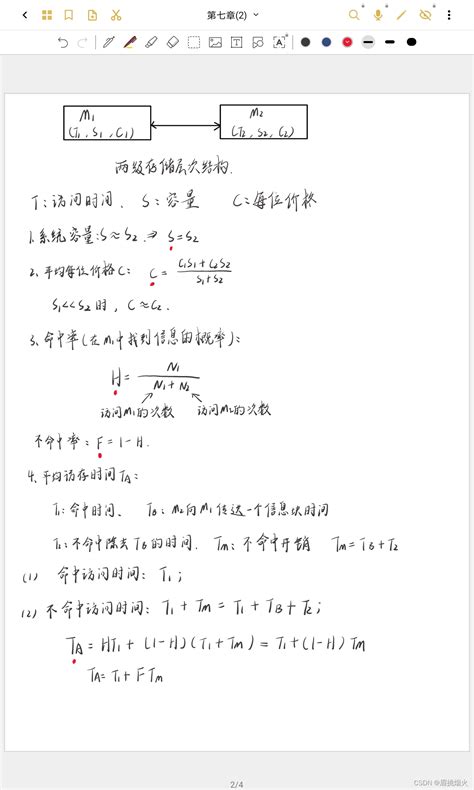 第七章(2)
M1
(T1, S1, C1)
M2
(T2, S2, C2)
两级存储层次结构.
T:访问时间、 S:容量 C:每位价格
1.系统容量:S≈S2. ⇒ S=S2
2.平均每位价格C: C = (C1S1+C2S2)/(S1+S2)
S1<<S2时, C≈C2.
3.命中率(在M1中找到信息的概率):
H = N1/(N1+N2)
访问M1的次数 访问M2的次数
不命中率: F=1-H.
4.平均访存时间TA:
T1:命中时间、 TB:M2向M1传送一个信息块时间
T2:不命中除去TB的时间. Tm:不命中开销 Tm=TB+T2
(1) 命中访问时间: T1;
(2) 不命中访问时间: T1+Tm = T1+TB+T2;
TA = HT1+(1-H)(T1+Tm) = T1+(1-H)Tm
TA=T1+FTm
2/4
CSDN @眉挑烟火